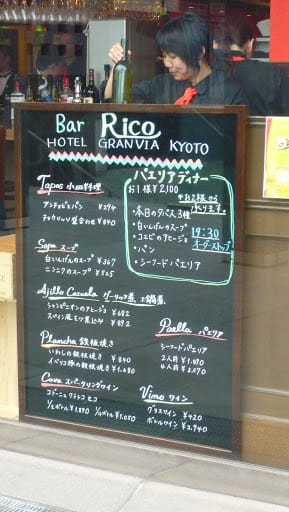 Bar Rico
HOTEL GRANVIA KYOTO
Tapas 小皿料理
アンチョビとパン ¥294
チョリソ盛合わせ ¥840
Sopa スープ
白いんげんのスープ ¥367
ニンニクのスープ ¥525
Ajillo Cazuela ガーリック煮 土鍋煮
シャンピニオンのアヒージョ ¥682
スペイン風モツ煮込み ¥892
Plancha 鉄板焼き
いわしの鉄板焼き ¥840
イベリコ豚の鉄板焼き ¥1,680
Cava スパークリングワイン
コドーニュ クラシコ セコ
1/2ボトル ¥1,890 1/4ボトル ¥1,050
パエリアディナー
お1人様 ¥2,100
*お2人様から承ります。
・本日のタパス3種
・白いんげんのスープ
・コエビのアヒージョ
・パン
・シーフードパエリア
19:30
オーダーストップ
Paella パエリア
シーフードパエリア
2人前 ¥1,890
4人前 ¥3,780
Vino ワイン
グラスワイン ¥420
ボトルワイン ¥2,940